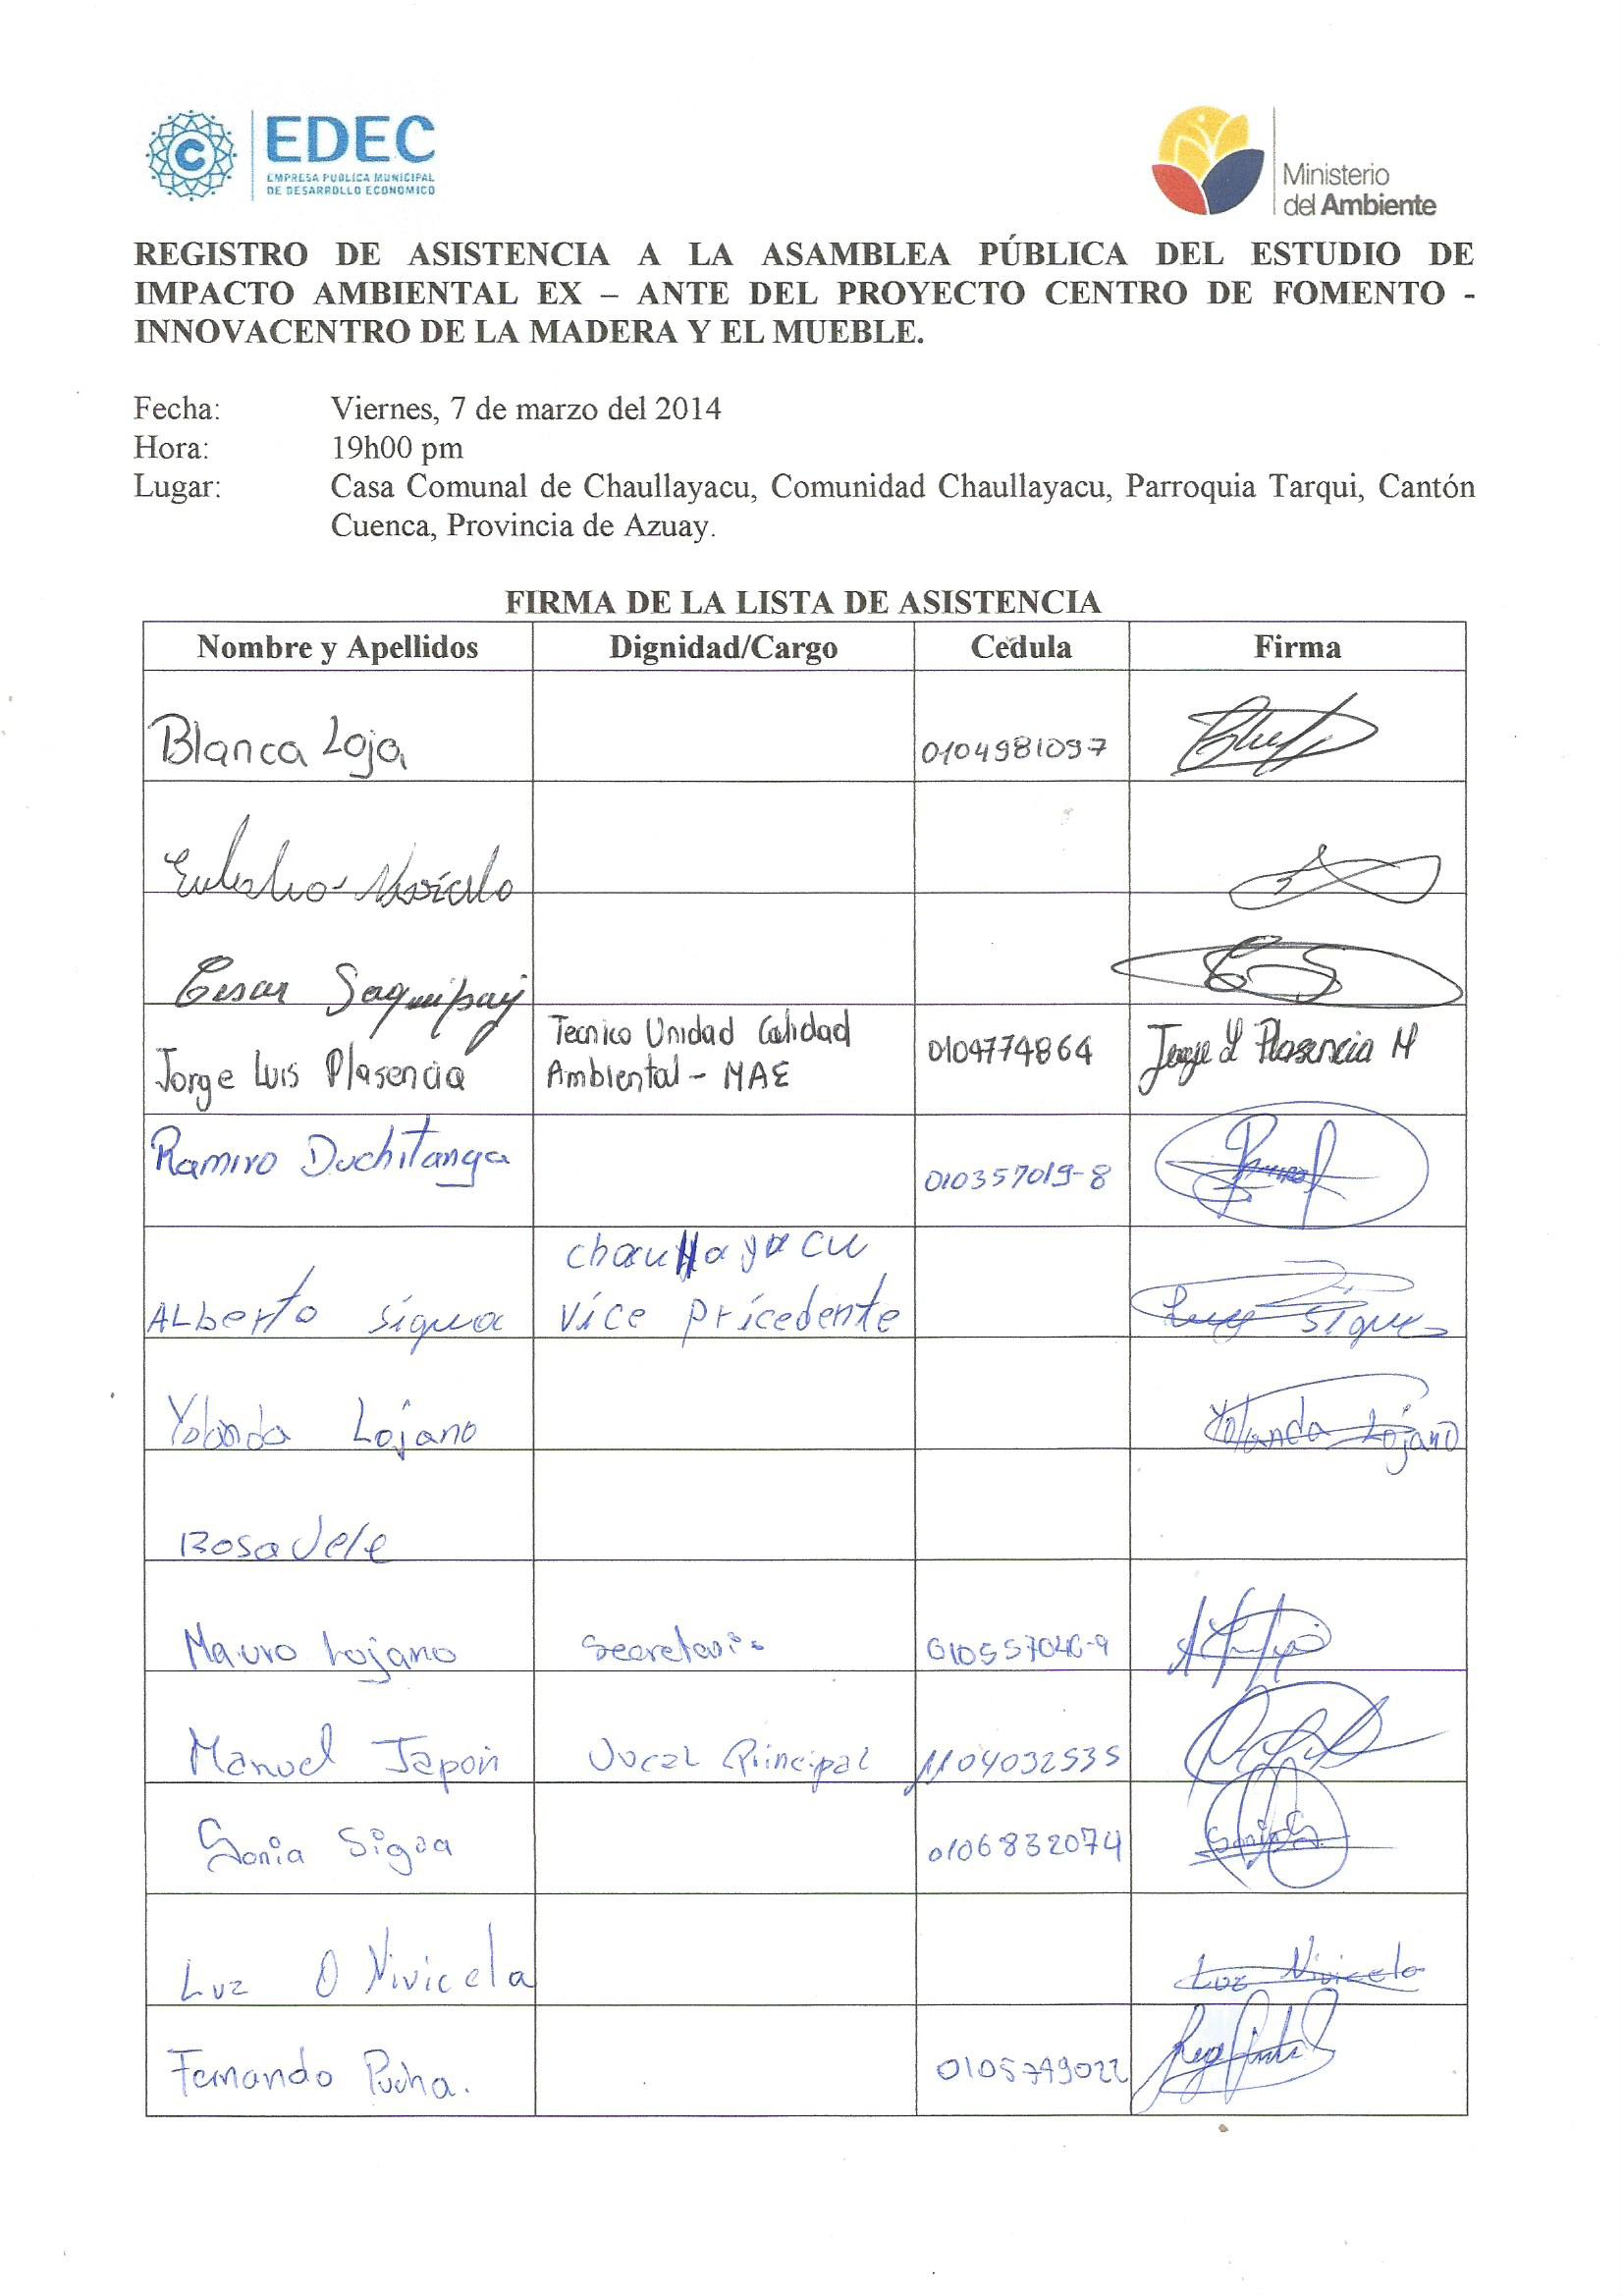 EDEC
EMPRESA PUBLICA MUNICIPAL
DE DESARROLLO ECONOMICO
Ministerio
del Ambiente
REGISTRO DE ASISTENCIA A LA ASAMBLEA PÚBLICA DEL ESTUDIO DE
IMPACTO AMBIENTAL EX – ANTE DEL PROYECTO CENTRO DE FOMENTO -
INNOVACENTRO DE LA MADERA Y EL MUEBLE.
Fecha: Viernes, 7 de marzo del 2014
Hora: 19h00 pm
Lugar: Casa Comunal de Chaullayacu, Comunidad Chaullayacu, Parroquia Tarqui, Cantón
Cuenca, Provincia de Azuay.
FIRMA DE LA LISTA DE ASISTENCIA
Nombre y Apellidos Dignidad/Cargo Cedula Firma
Blanca Loja 0104981097
Cesar Saquipay
Tecnico Unidad Calidad
Jorge Luis Plasencia Ambiental - MAE 0104774864 Jorge L Plasencia M
Ramiro Duchitanga 010357019-8
Chaullayacu
ALberto sigua vice pricedente Sigua
Yolanda Lojano Yolanda Lojano
Rosa Vele
Mauro Lojano Secretario 010557046-9
Manuel Japon Vocal Principal 1104032535
Sonia Sigua 0106832074
Luz O Nivicela Luz Nivicela
Fernando Pucha. 0105749022